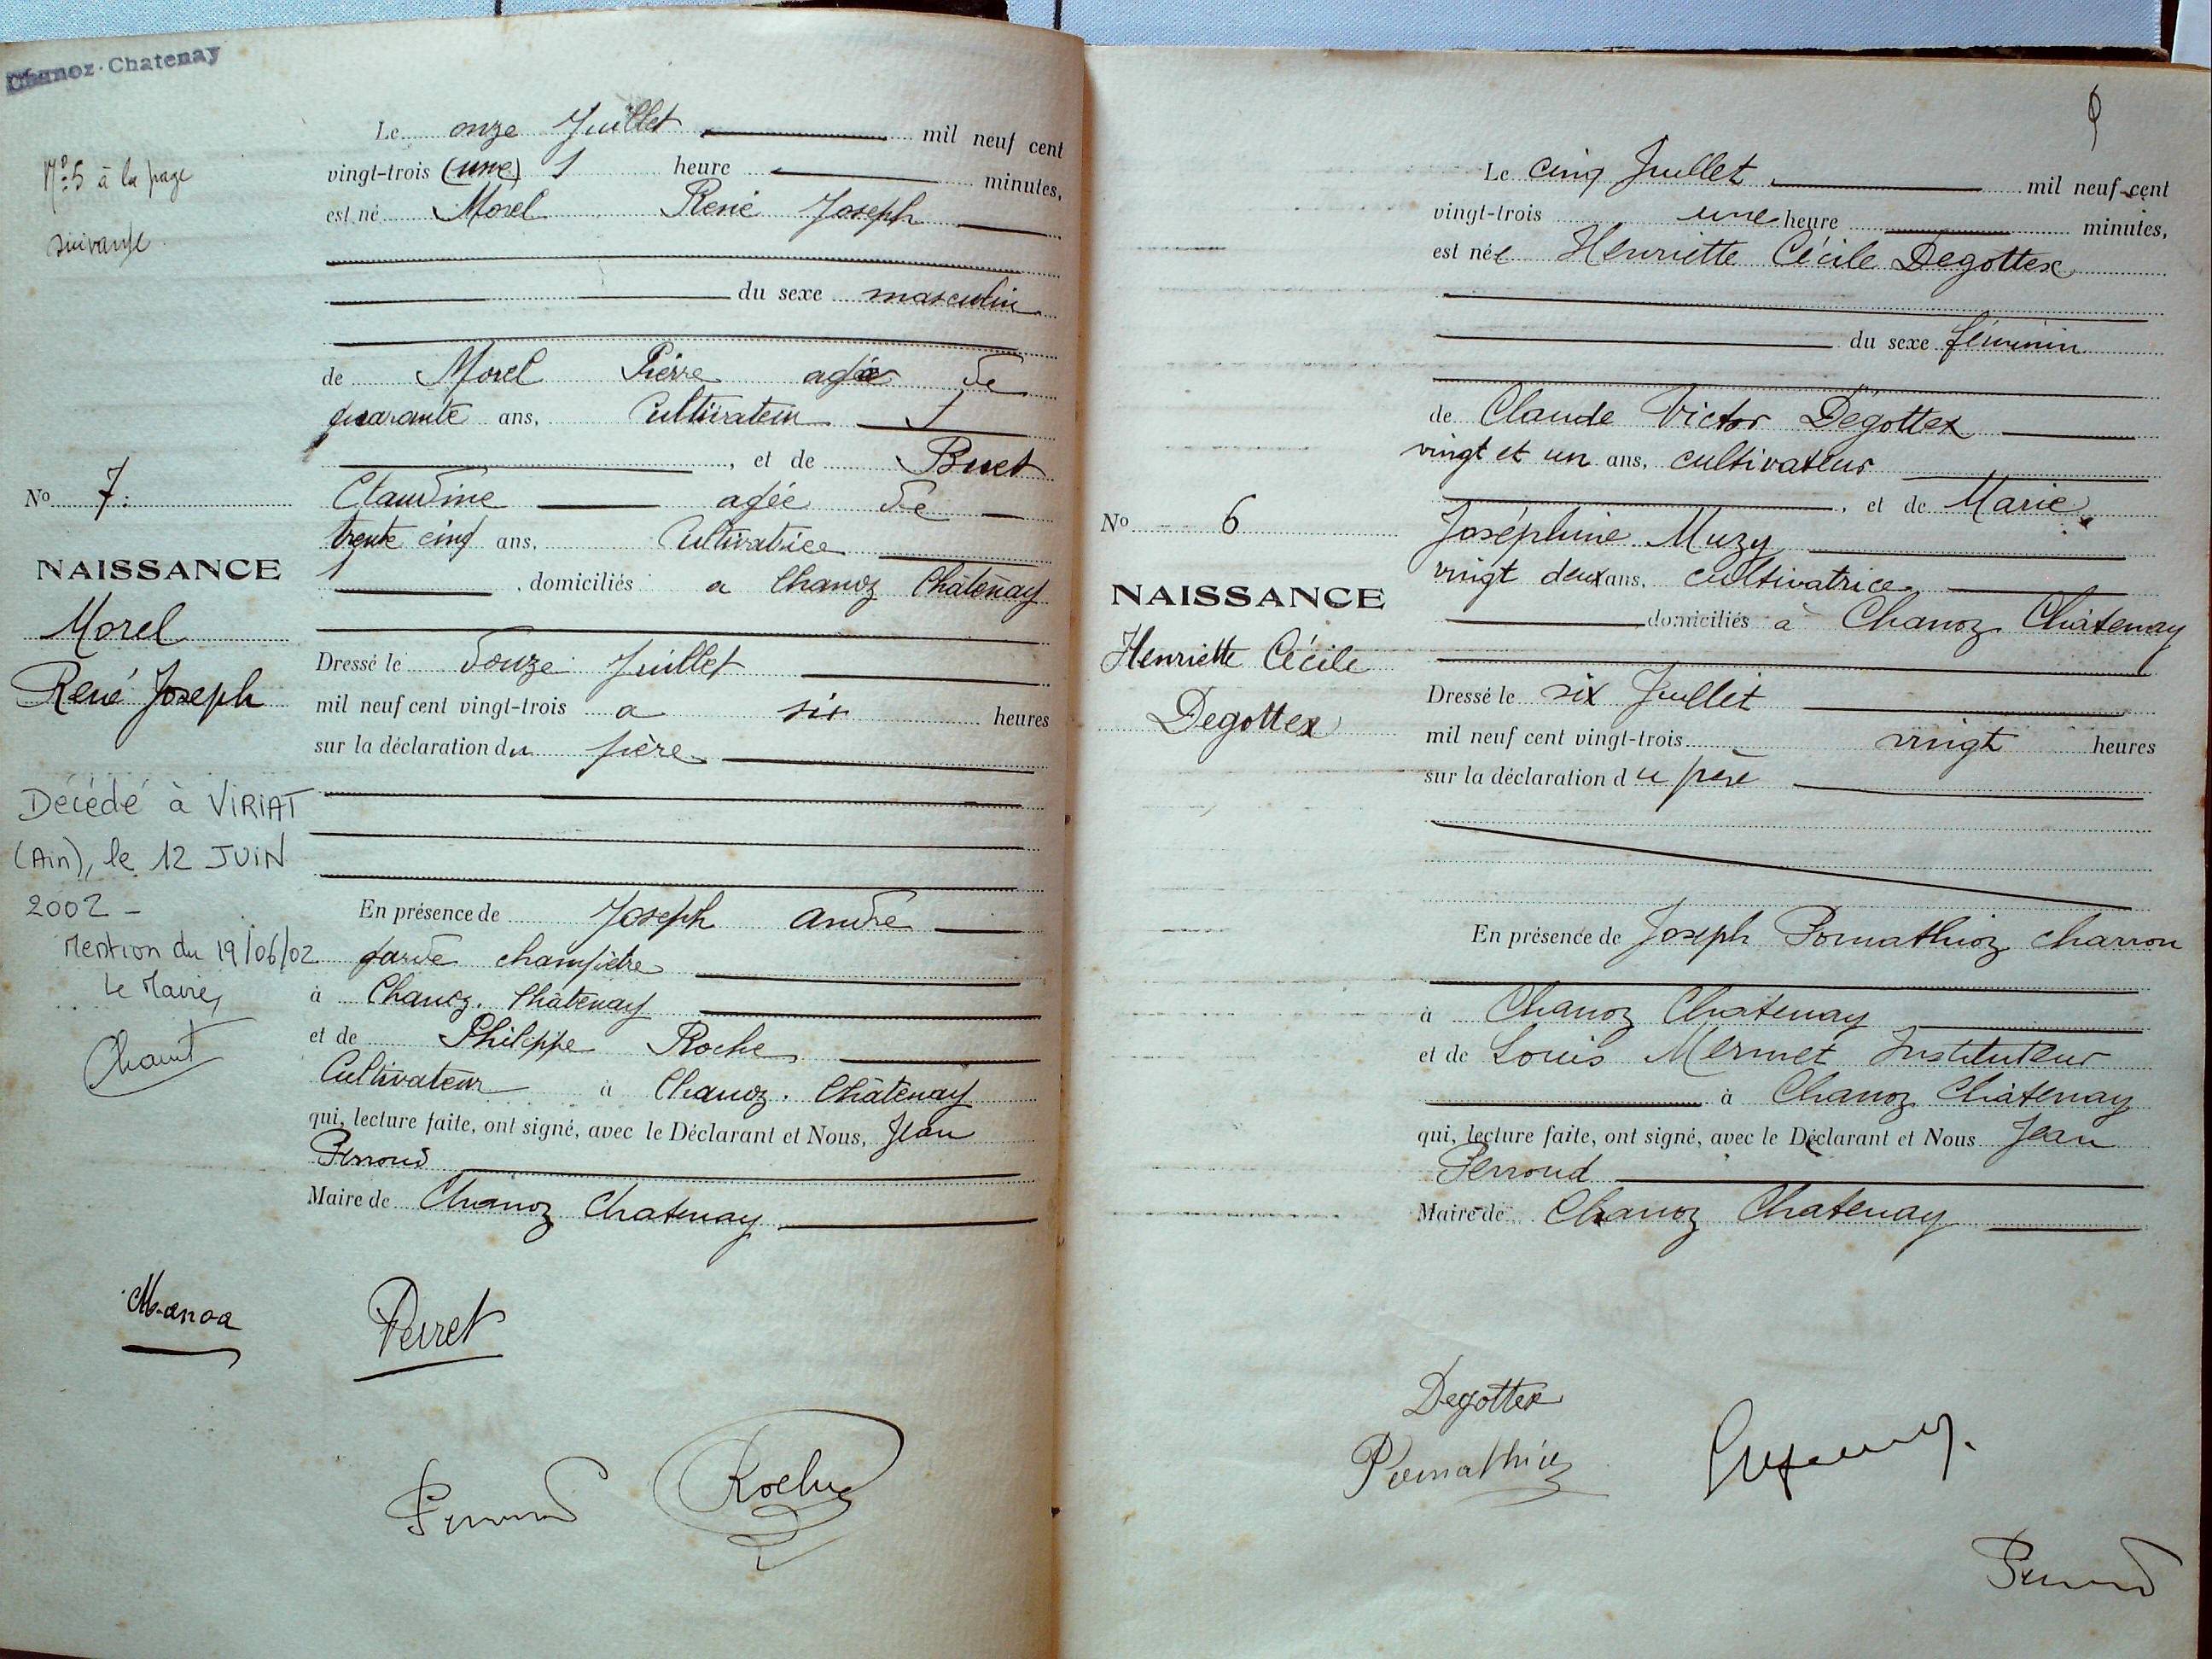 Chanoz-Chatenay
N° 5 à la page
suivante
Le onze Juillet mil neuf cent
vingt-trois (une) 1 heure minutes,
est né Morel René Joseph
du sexe masculin
de Morel Pierre agé de
quarante ans, Cultivateur
, et de Buet
Claudine agée de
trente cinq ans, Cultivatrice
, domiciliés a Chanoz Châtenay
Dressé le douze Juillet
mil neuf cent vingt-trois a six heures
sur la déclaration du père
En présence de Joseph André
garde champêtre
à Chanoz. Châtenay
et de Philippe Roche
Cultivateur à Chanoz. Châtenay
qui, lecture faite, ont signé, avec le Déclarant et Nous, Jean
Perroud
Maire de Chanoz Chatenay
N° 7:
NAISSANCE
Morel
René Joseph
Décédé à VIRIAT
(Ain), le 12 JUIN
2002 -
Mention du 19/06/02
Le Maire,
Perret
Perroud
Roche
Le cinq Juillet mil neuf cent
vingt-trois une heure minutes,
est née Henriette Cécile Degottex
du sexe féminin
de Claude Victor Degottex
vingt et un ans, cultivateur
, et de Marie
Joséphine Muzy
vingt deux ans, cultivatrice
domiciliés à Chanoz Châtenay
Dressé le six Juillet
mil neuf cent vingt-trois vingt heures
sur la déclaration du père
En présence de Joseph Pomathioz charron
à Chanoz Chatenay
et de Louis Mermet Instituteur
à Chanoz Châtenay
qui, lecture faite, ont signé, avec le Déclarant et Nous Jean
Perroud
Maire de Chanoz Chatenay
N° 6
NAISSANCE
Henriette Cécile
Degottex
Degottex
Pomathioz
Perroud